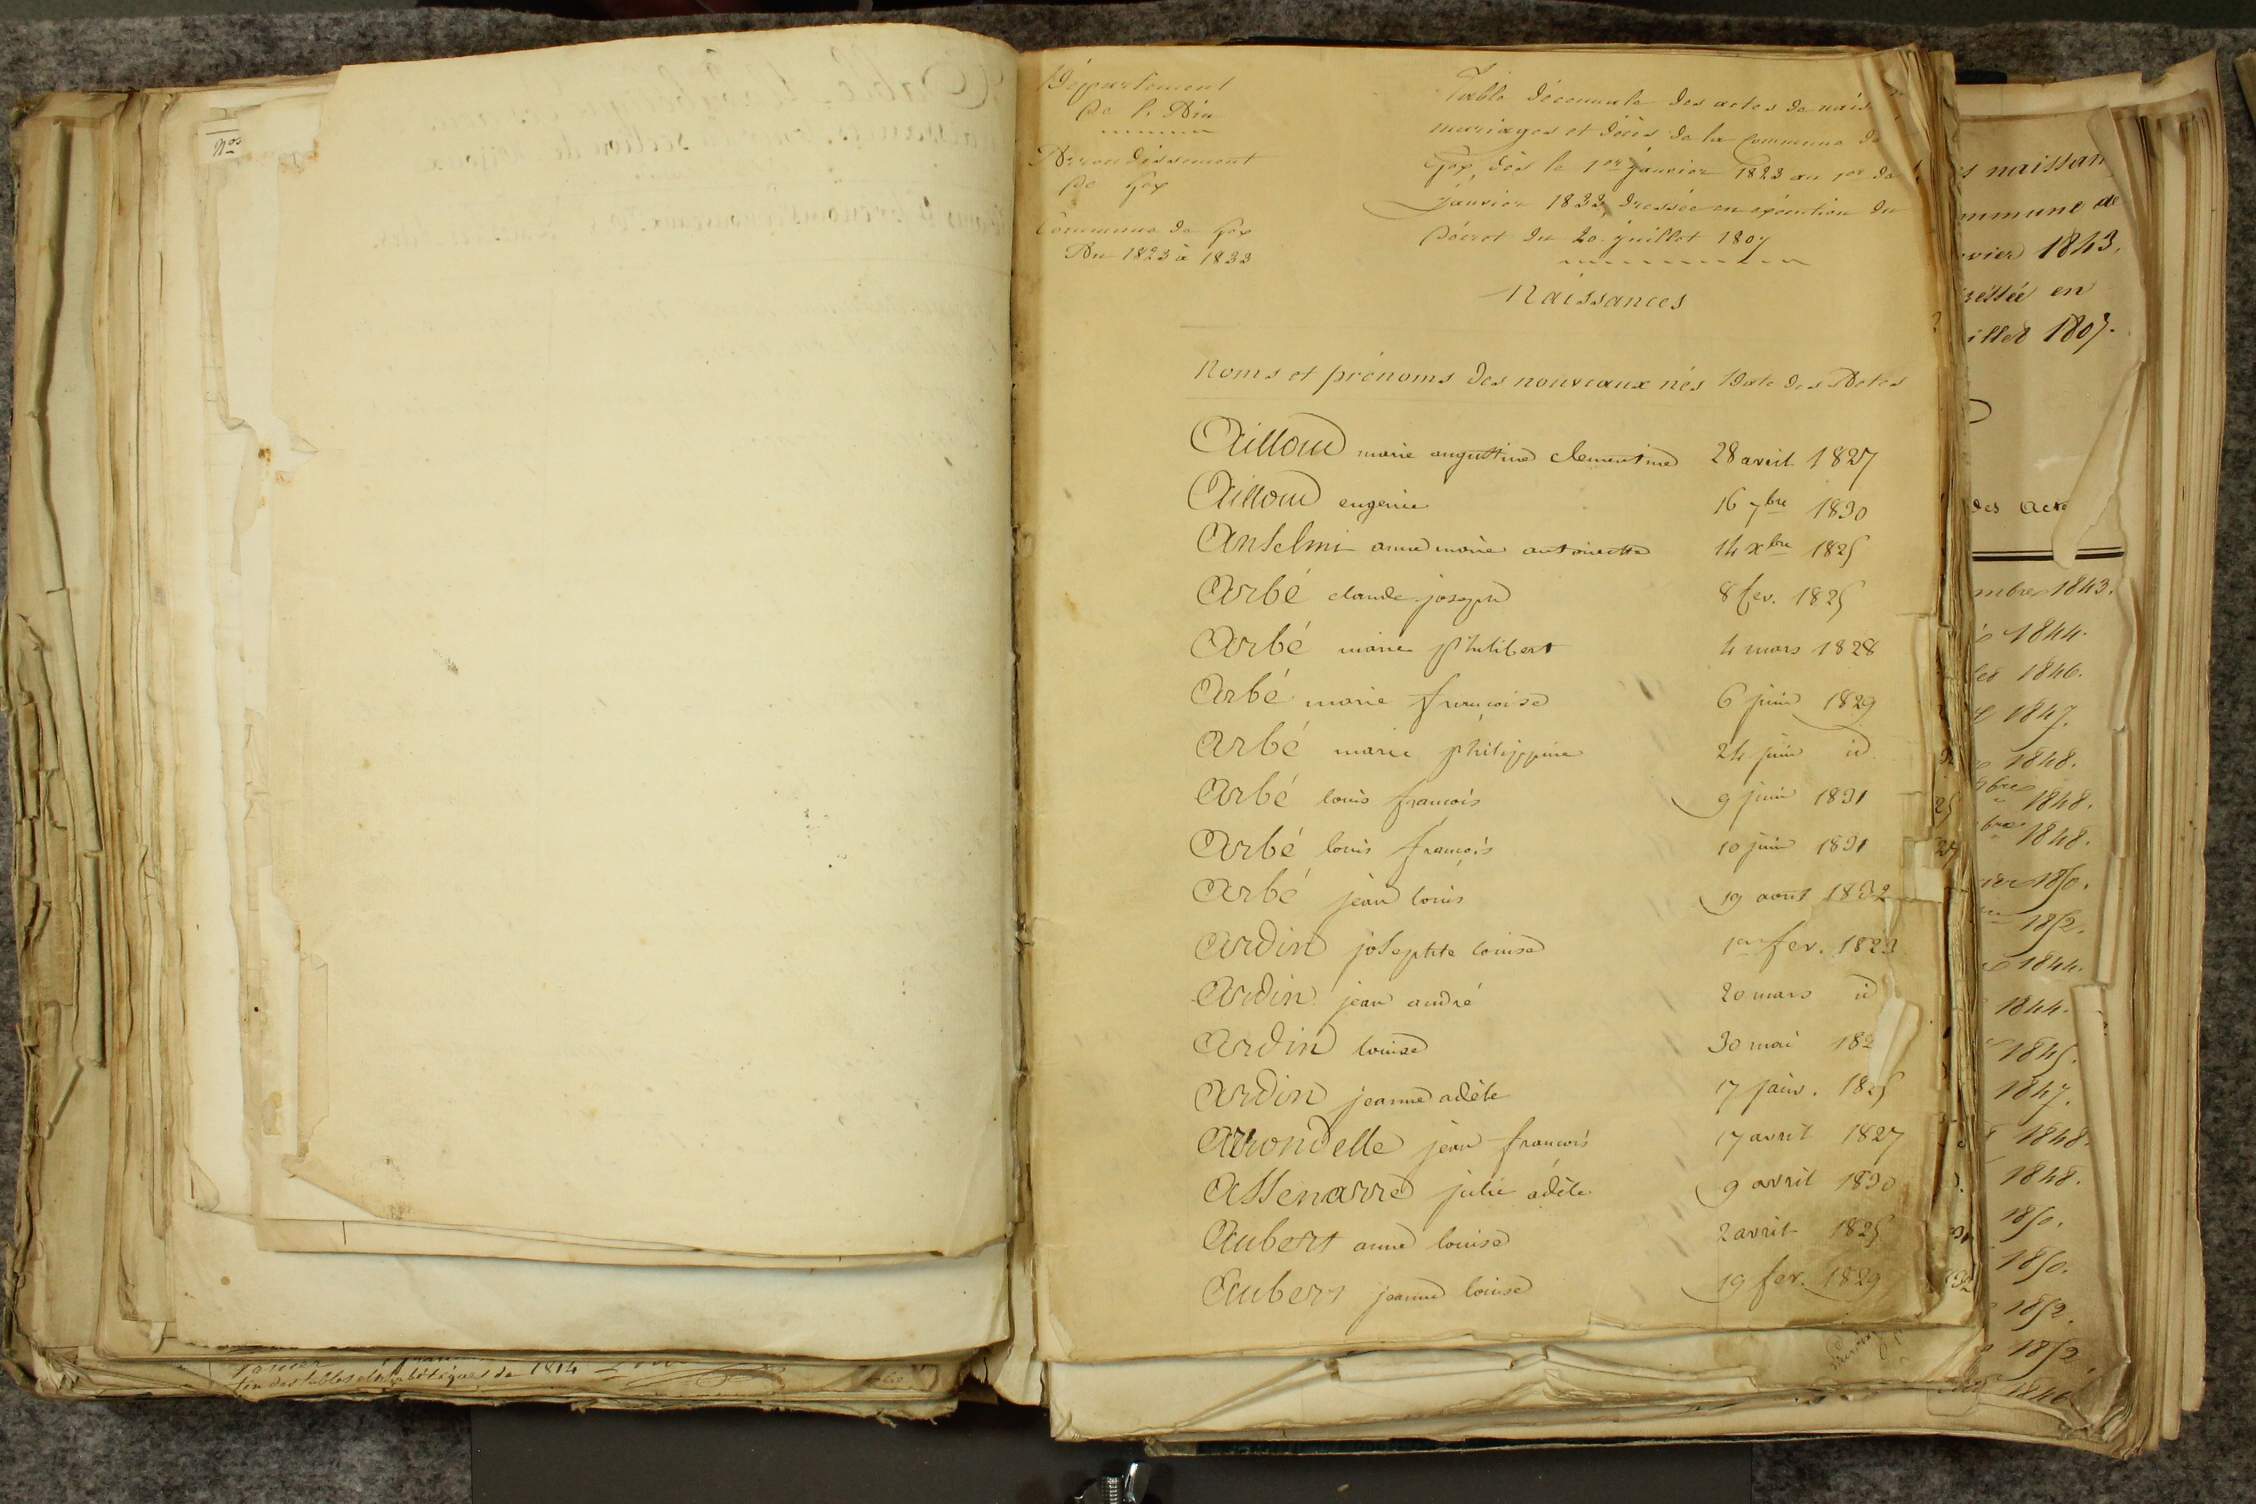 Nos
Département
De l'Ain
Arrondissement
De Gex
Commune de Gex
Du 1823 à 1833
Table décennale des actes de nais
mariages et décès de la commune de
Gex, dès le 1er janvier 1823 au 1er de
Janvier 1833, dressée en exécution du
Décret du 20 juillet 1807
Naissances
Noms et prénoms des nouveaux nés Date des Actes
Ailloud marie augustine clementine 28 avril 1827
Ailloud eugenie 16 7bre 1830
Anselmi anne marie antoinette 14 xbre 1825
Arbé claude joseph 8 fev. 1825
Arbé marie philibert 4 mars 1828
Arbé marie françoise 6 juin 1829
Arbé marie philippine 24 juin id
Arbé louis françois 9 juin 1831
Arbé louis françois 10 juin 1831
Arbé jean louis 19 aout 1832
Ardin josephte louise 1er fev. 1823
Ardin jean andré 20 mars id
Ardin louise 30 mai 182
Ardin jeanne adèle 17 janv. 1825
Arrondelle jean françois 17 avril 1827
Assenarre julie adèle 9 avril 1830
Aubert anne louise 2 avril 1825
Aubert jeanne louise 19 fev. 1829
s naissan
mmune de
vier 1843.
en
illet 1807.
des Acte
mbre 1843.
1844.
1846.
1847.
1848.
1848.
1848.
1850.
1852.
1844.
1844.
1845.
1847.
1848.
1848.
1850.
1850.
1852.
1852
1846
fin des tables alphabétiques de 1814